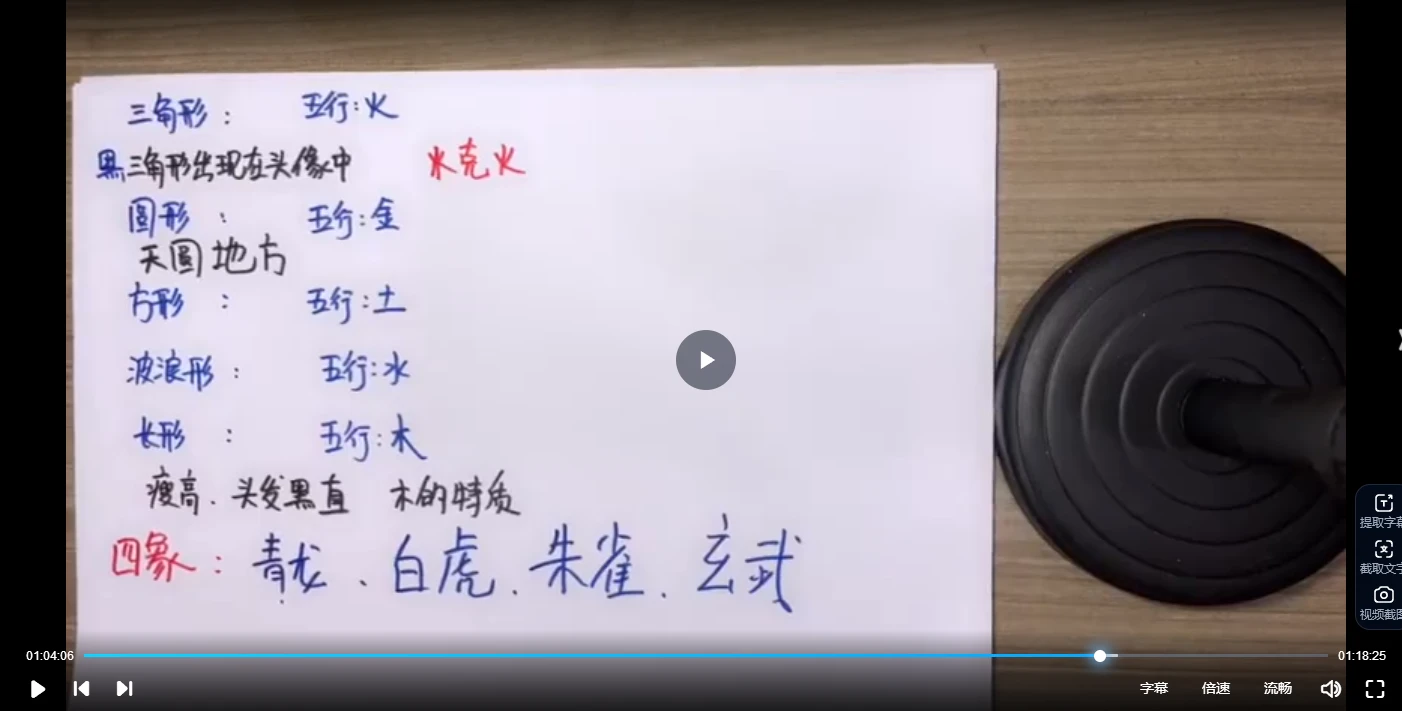 三角形： 五行：火
黑三角形出现在头像中 水克火
圆形： 五行：金
天圆地方
方形： 五行：土
波浪形： 五行：水
长形： 五行：木
瘦高、头发黑直 木的特质
四象：青龙、白虎、朱雀、玄武
提取字幕
截取文字
视频截图
01:04:06 01:18:25
字幕 倍速 流畅